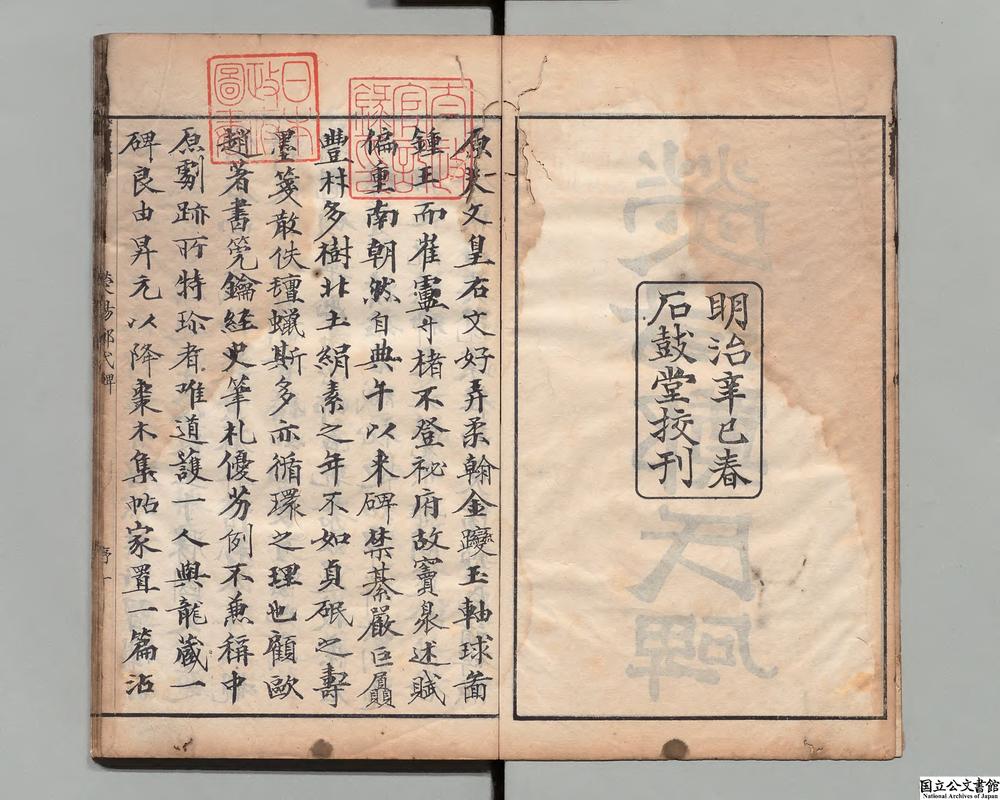 明治辛巳春
石鼓堂挍刊
原夫文皇右文好弄柔翰金躞玉軸球啚
鍾王而崔盧寸楮不登祕府故竇臮述賦
偏重南朝然自典午以来碑禁綦嚴巨贔
豐林多樹北土絹素之年不如貞珉之壽
墨箋散佚氊蠟斯多亦循環之理也顧歐
趙著書筦鑰經史筆札優劣例不兼稱中
原劇跡所特珎者唯道護一丁與龍藏一
碑良由昇元以降棗木集帖家置一篇沾
序一
日本政府圖書
国立公文書館
National Archives of Japan